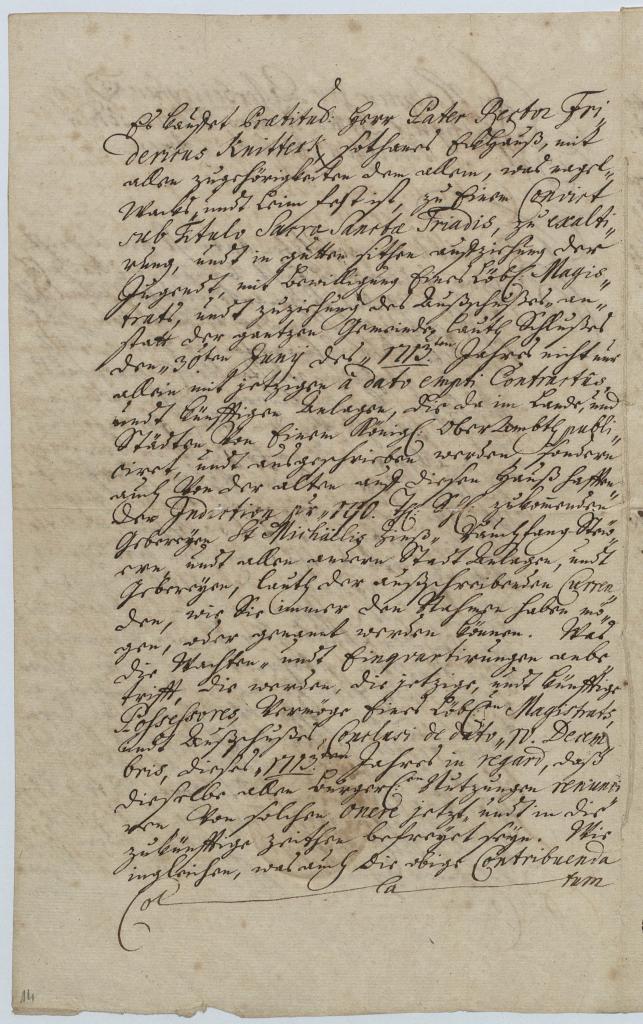 Es kauffet Prætitul: Herr Pater Rector Fri„
dericus Knittel, sothanes Eckhauß, mit
allen zugehörigkeiten dem allem, was nagel„
Wandt, undt Leim fest ist, zu Einem Convict
sub Titulo Sacro Sanctæ Triadis, zu exalti„
rung, undt in gutten sitten aufziehung der
Jugendt, mit bewilligung Eines Löbl: Magis„
trats, undt zuziehung des Außschusses an„
statt der gantzen Gemeinde, lauth Schlusses
den 30ten Juny des 1713ten Jahres nicht nur
allein mit jetzigen à dato empti Contractûs
undt künfftigen Anlagen, die da im Lande, und
Städten von Einem Königl: Ober Ambte publi„
ciret, undt ausgeschrieben werden sondern
auch von der alten auf diesen Hauß hafften„
der Indiction pr 170. Th: zukommenden
Gebereyen St Michaelis Zinß, Rauchfang Steü„
ern, undt allen andern Stadt Anlagen, undt
Gebereyen, lauth der außschreibenden Curren„
den, wie Sie immer den Nahmen haben mö„
gen, oder genant werden können. Was
die Wachten, undt Einquartirungen anbe„
trifft, die werden, die jetzige, undt künfftige
Possessores, Vermöge Eines Löbl: Magistrats,
undt Außschusses Conclusi de dato 10. Decem„
bris, dieses 1713ten Jahres in regard, daß
dieselbe allen bürgerl: Nutzungen renunci„
ren von solchen onere jetzt, undt in die
zukünfftige zeithen befreyet seyn. Wie
ingleichen, was auch die obige Contribuenda
Col la tum
14